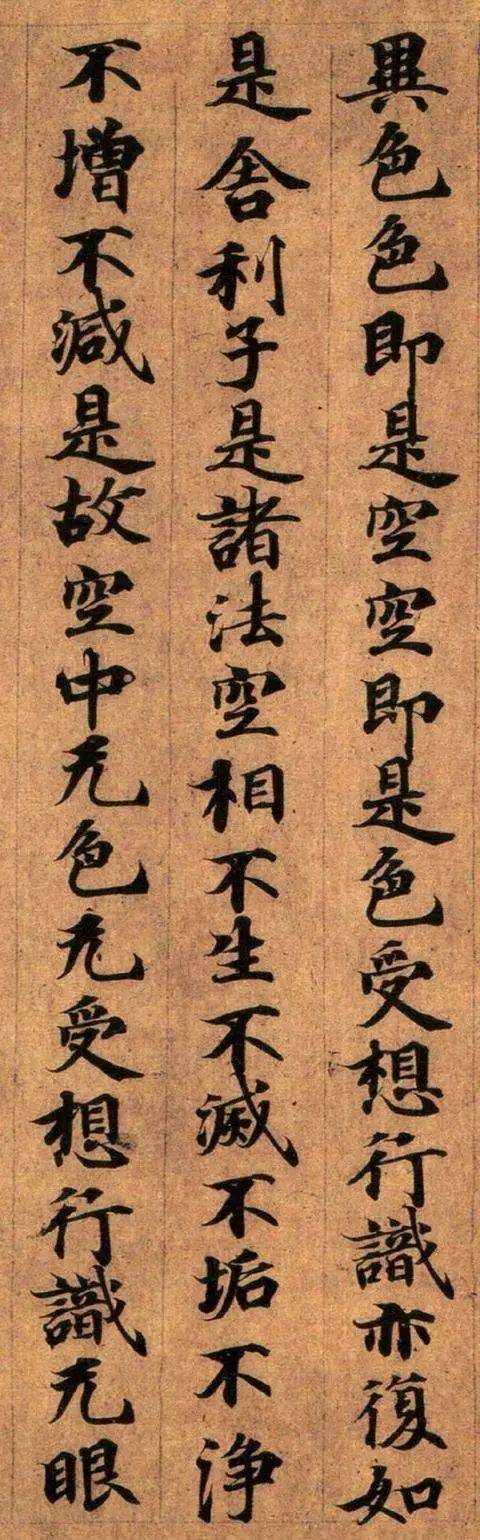 異色色即是空空即是色受想行識亦復如
是舍利子是諸法空相不生不滅不垢不淨
不增不減是故空中无色无受想行識无眼